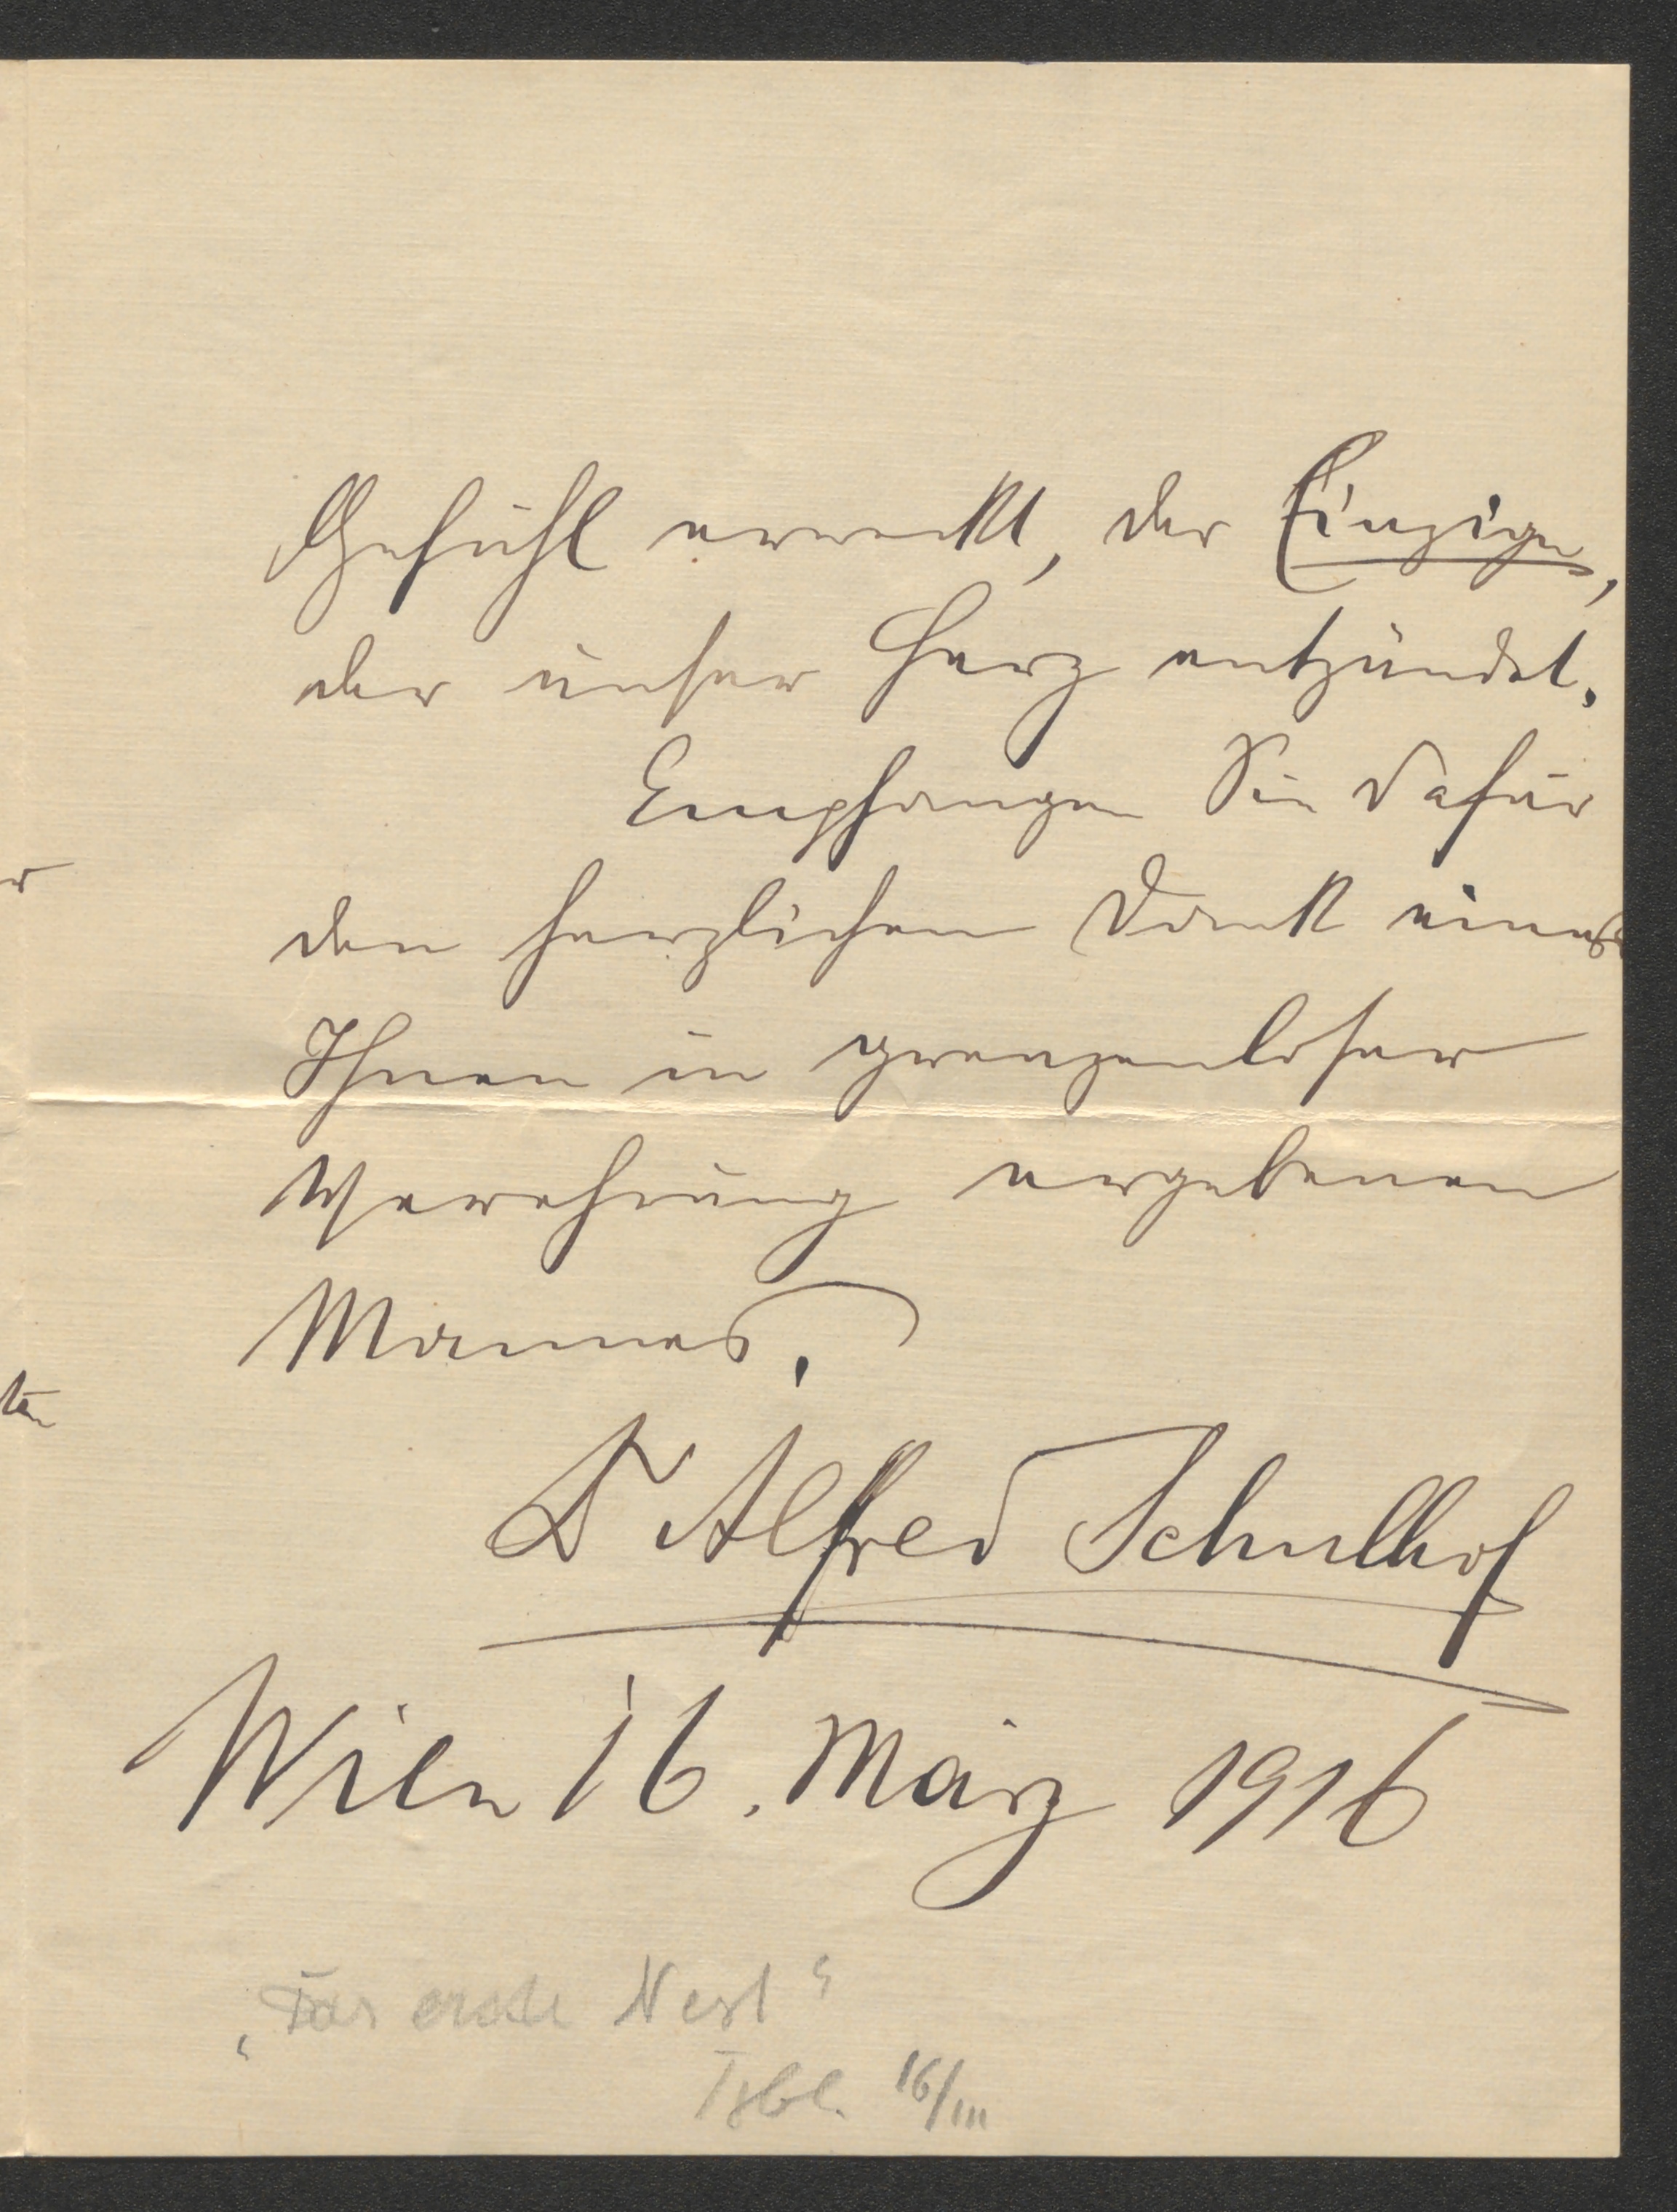 Gefühl erweckt, der Einzige,
der unser Herz entzündet.
Empfangen Sie dafür
den herzlichen Dank eines
Ihnen in grenzenloser
Verehrung ergebenen
Mannes.
Dr Alfred Schulhof
Wien 16. März 1916
„Das erste Nest“
Tgbl. 16/III